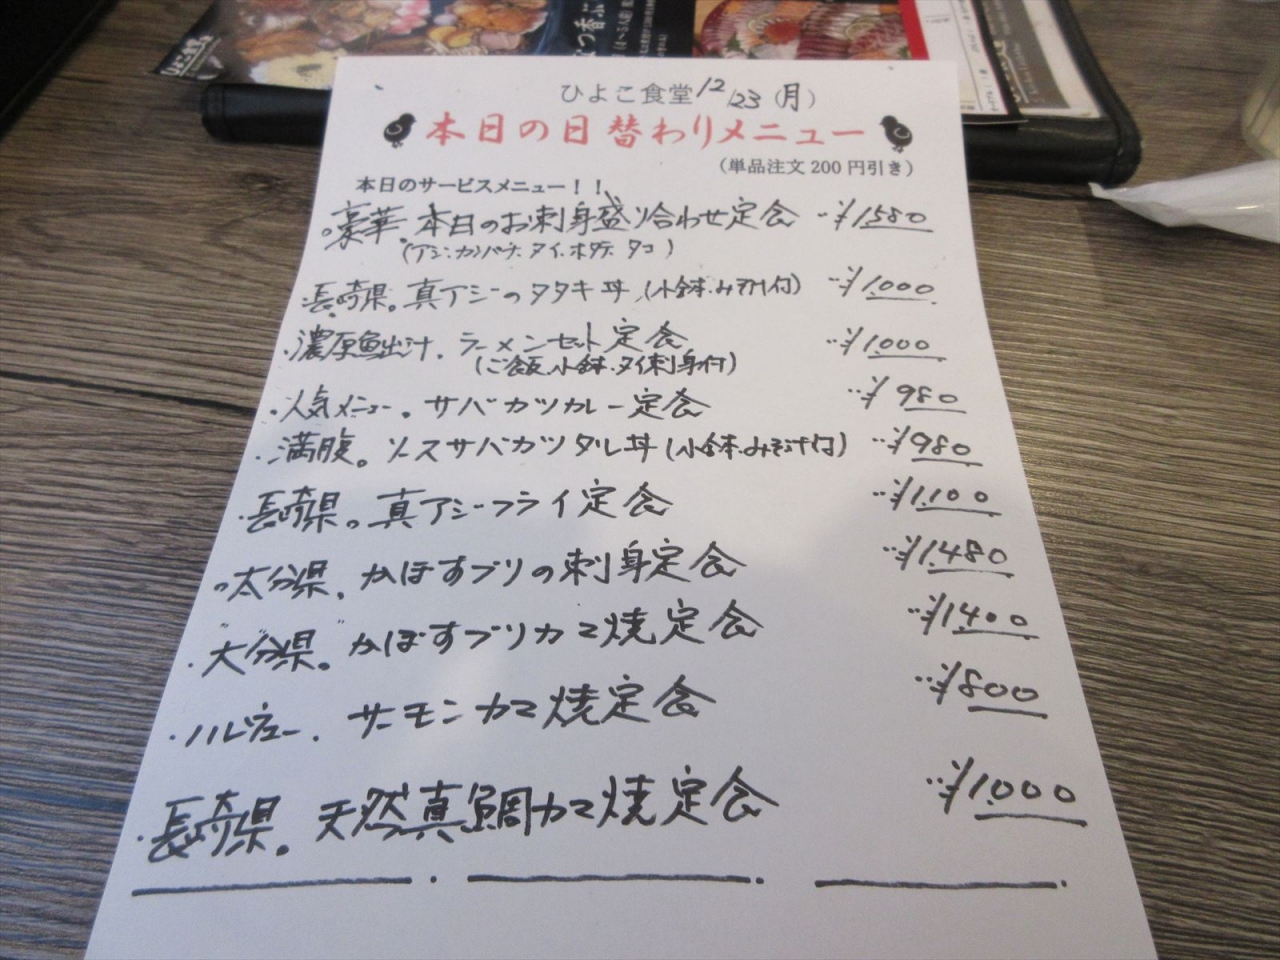 ひよこ食堂 12/23 (月)
本日の日替わりメニュー
(単品注文 200 円引き)
本日のサービスメニュー!!
豪華。本日のお刺身盛り合わせ定食 …¥1580
(アジ・カンパチ・タイ・ホタテ・タコ)
・長崎県。真アジのタタキ丼(小鉢・みそ汁付) …¥1,000
・濃厚魚出汁。ラーメンセット定食 …¥1,000
(ご飯・小鉢・タイ刺身付)
・人気メニュー。サバカツカレー定食 …¥980
・満腹。ソースサバカツタル丼(小鉢・みそ汁付) …¥980
・長崎県。真アジフライ定食 …¥1,100
・大分県。かぼすブリの刺身定食 …¥1,480
・大分県。かぼすブリカマ焼定食 …¥1400
・ノルウェー。サーモンカマ焼定食 …¥800
・長崎県。天然真鯛カマ焼定食 …¥1,000